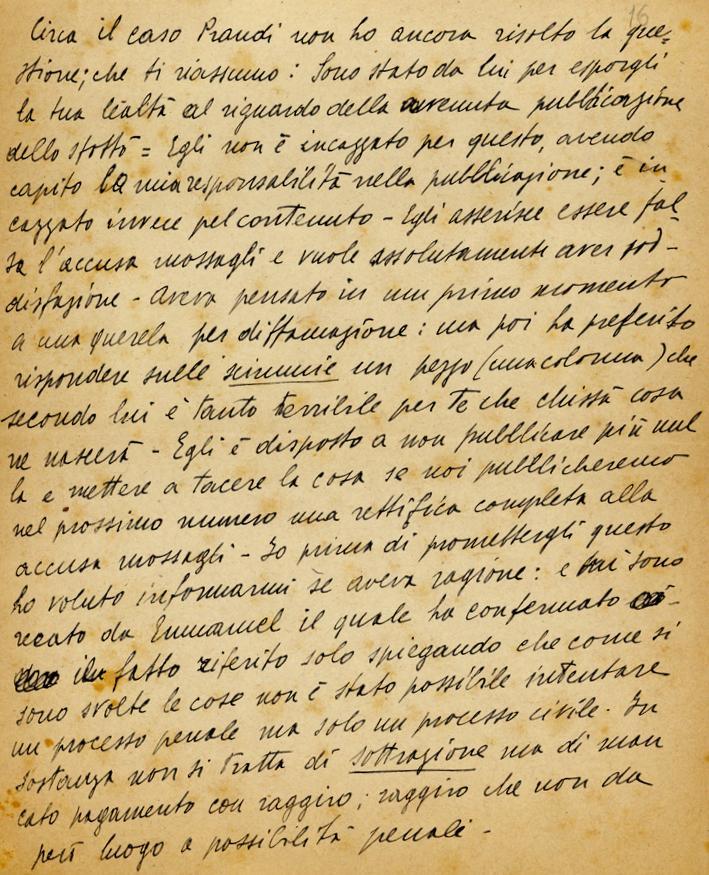 16
Circa il caso Prandi non ho ancora risolto la que=
stione; che ti riassumo: Sono stato da lui per esporgli
la tua lealtà al riguardo della avvenuta pubblicazione
dello sfottò = Egli non è incazzato per questo, avendo
capito la mia responsabilità nella pubblicazione; è in
cazzato invece pel contenuto - Egli asserisce essere fal
sa l'accusa mossagli e vuole assolutamente aver sod-
disfazione - Aveva pensato in un primo momento
a una querela per diffamazione: ma poi ha preferito
rispondere sulle scimmie un pezzo (una colonna) che
secondo lui è tanto terribile per te che chissà cosa
ne nascerà - Egli è disposto a non pubblicare più nul
la e mettere a tacere la cosa se noi pubblicheremo
nel prossimo numero una rettifica completa alla
accusa mossagli - Io prima di promettergli questo
ho voluto informarmi se aveva ragione: e mi sono
recato da Emmanuel il quale ha confermato
il fatto riferito solo spiegando che come si
sono svolte le cose non è stato possibile intentare
un processo penale ma solo un processo civile. In
sostanza non si tratta di sottrazione ma di man
cato pagamento con raggiro; raggiro che non da
però luogo a possibilità penali -